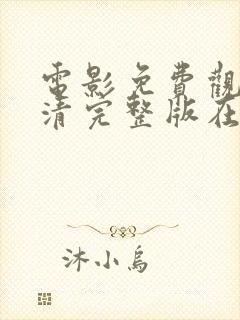 電影免費觀
清完整版在
沐小烏